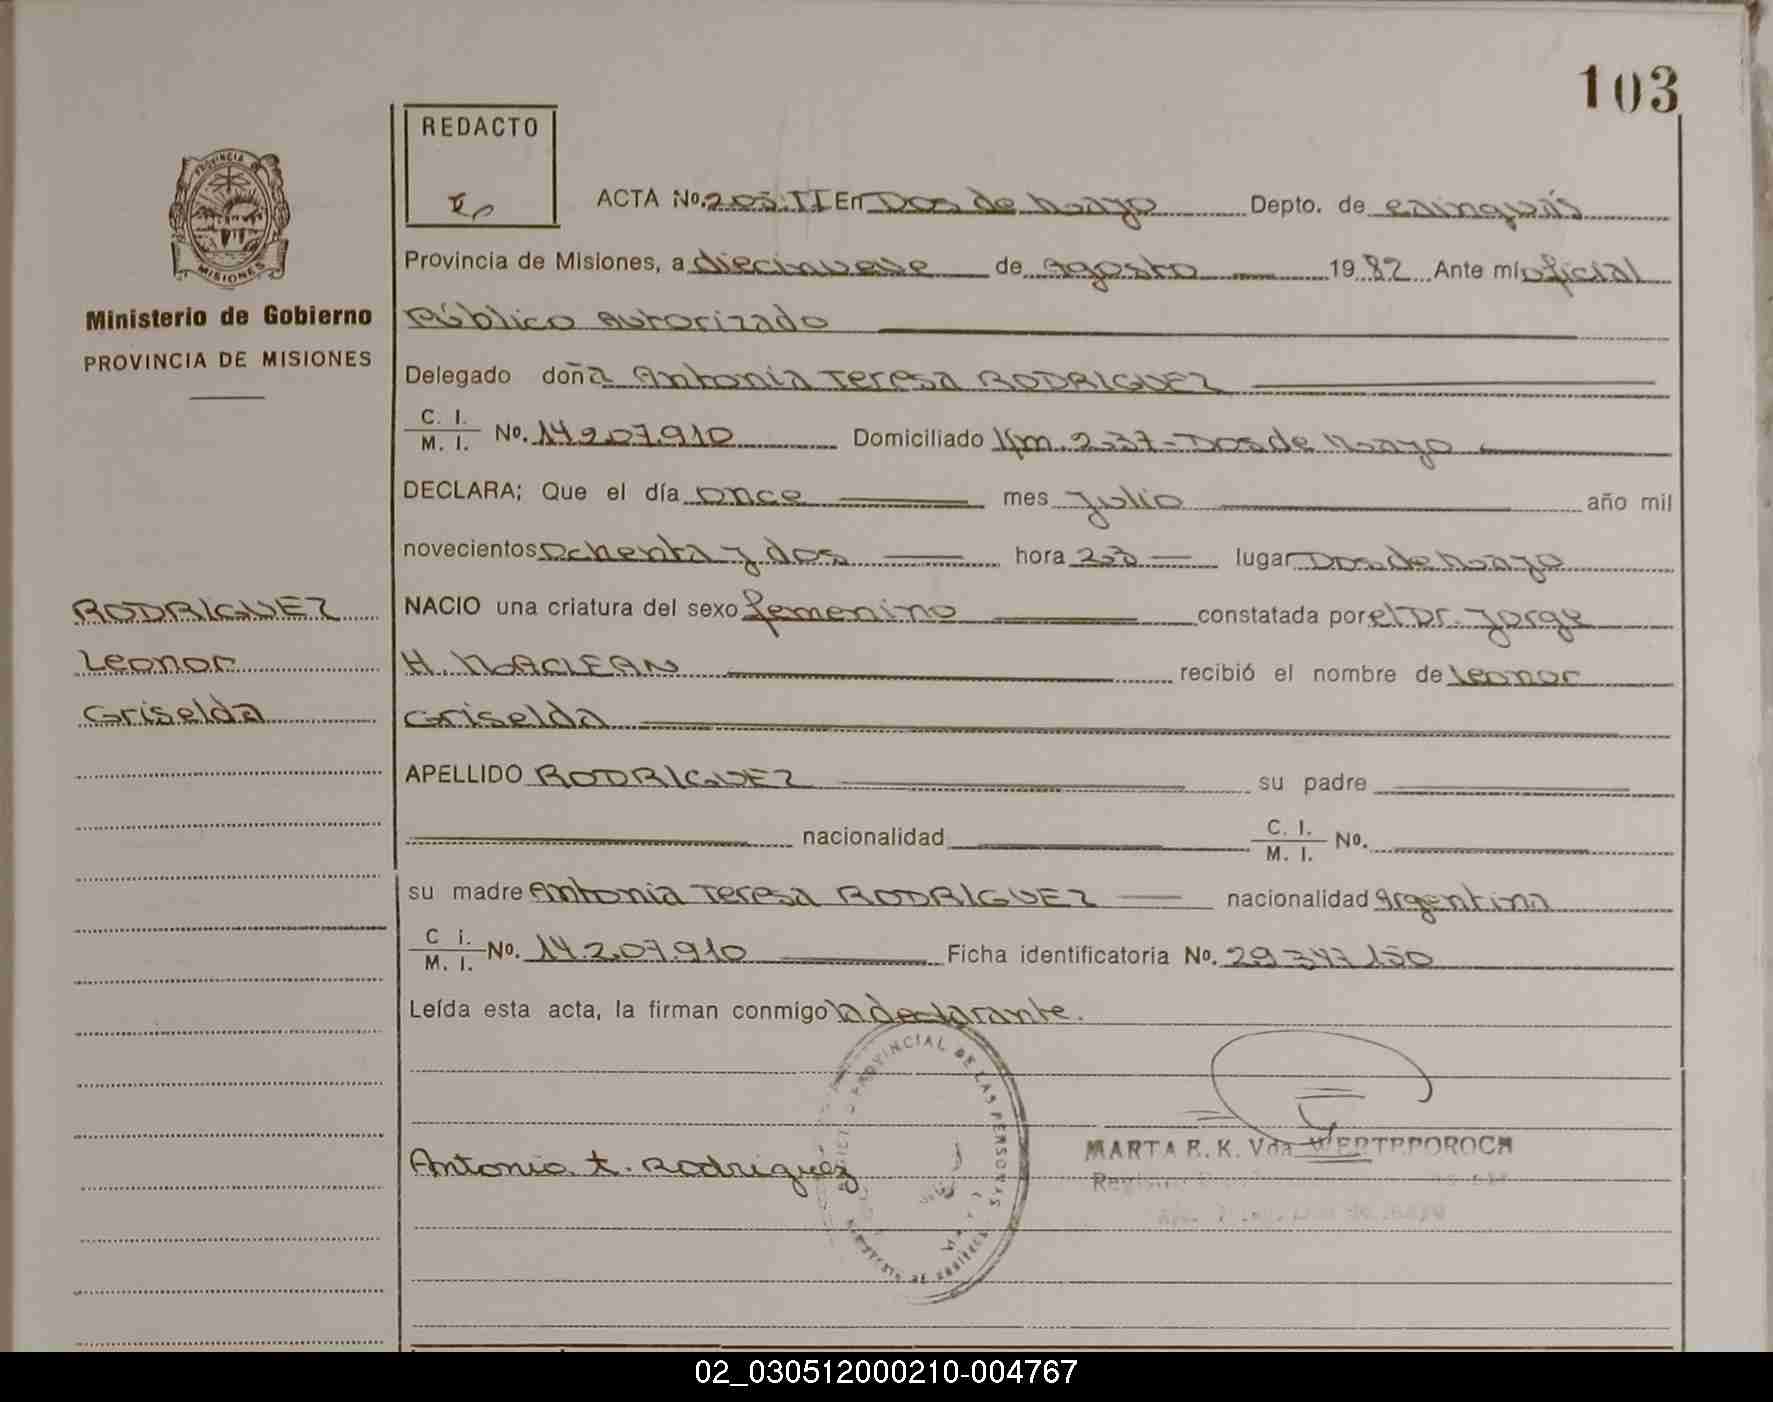 103
REDACTO
ACTA No. 203.II En Dos de Mayo Depto. de Cainguás
Provincia de Misiones, a diecinueve de Agosto 1982 Ante mí oficial
Público Autorizado
Delegado doña Antonia Teresa RODRIGUEZ
C. I.
M. I. No. 14.207.910 Domiciliado Km. 237 - Dos de Mayo
DECLARA; Que el día once mes Julio año mil
novecientos ochenta y dos hora lugar Dos de Mayo
NACIO una criatura del sexo femenino constatada por el Dr. Jorge
H. MACLEAN recibió el nombre de Leonor
Griselda
APELLIDO RODRIGUEZ su padre
nacionalidad C. I.
M. I. No.
su madre Antonia Teresa RODRIGUEZ nacionalidad Argentina
C i.
M. I. No. 14.207.910 Ficha identificatoria No. 29.347.150
Leída esta acta, la firman conmigo la declarante.
Antonia t. Rodriguez
MARTA E. K. Vda WERTEPOROCH
PROVINCIAL DE LAS PERSONAS
PROVINCIA
MISIONES
Ministerio de Gobierno
PROVINCIA DE MISIONES
RODRIGUEZ
Leonor
Griselda
02_030512000210-004767